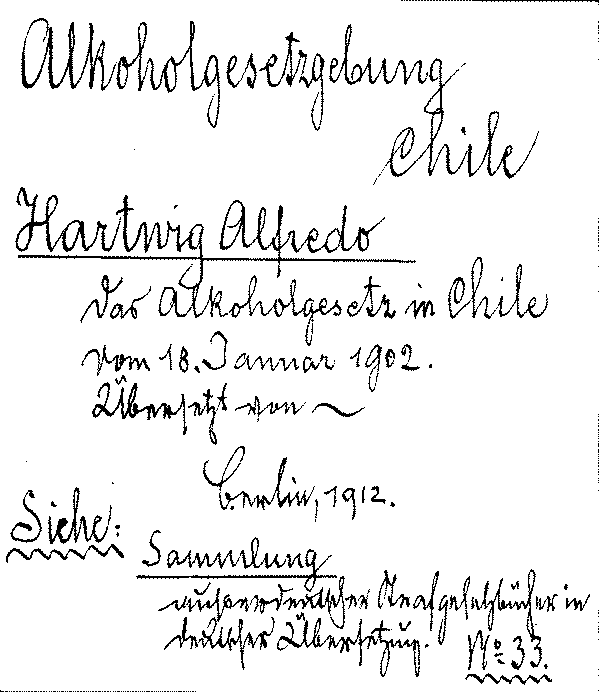 Alkoholgesetzgebung
Chile
Hartwig Alfredo
Das Alkoholgesetz in Chile
vom 18. Januar 1902.
Übersetzt von ~
Berlin, 1912.
Siehe:
Sammlung
ausserdeutscher Strafgesetzbücher in
deutscher Übersetzung.
No 33.